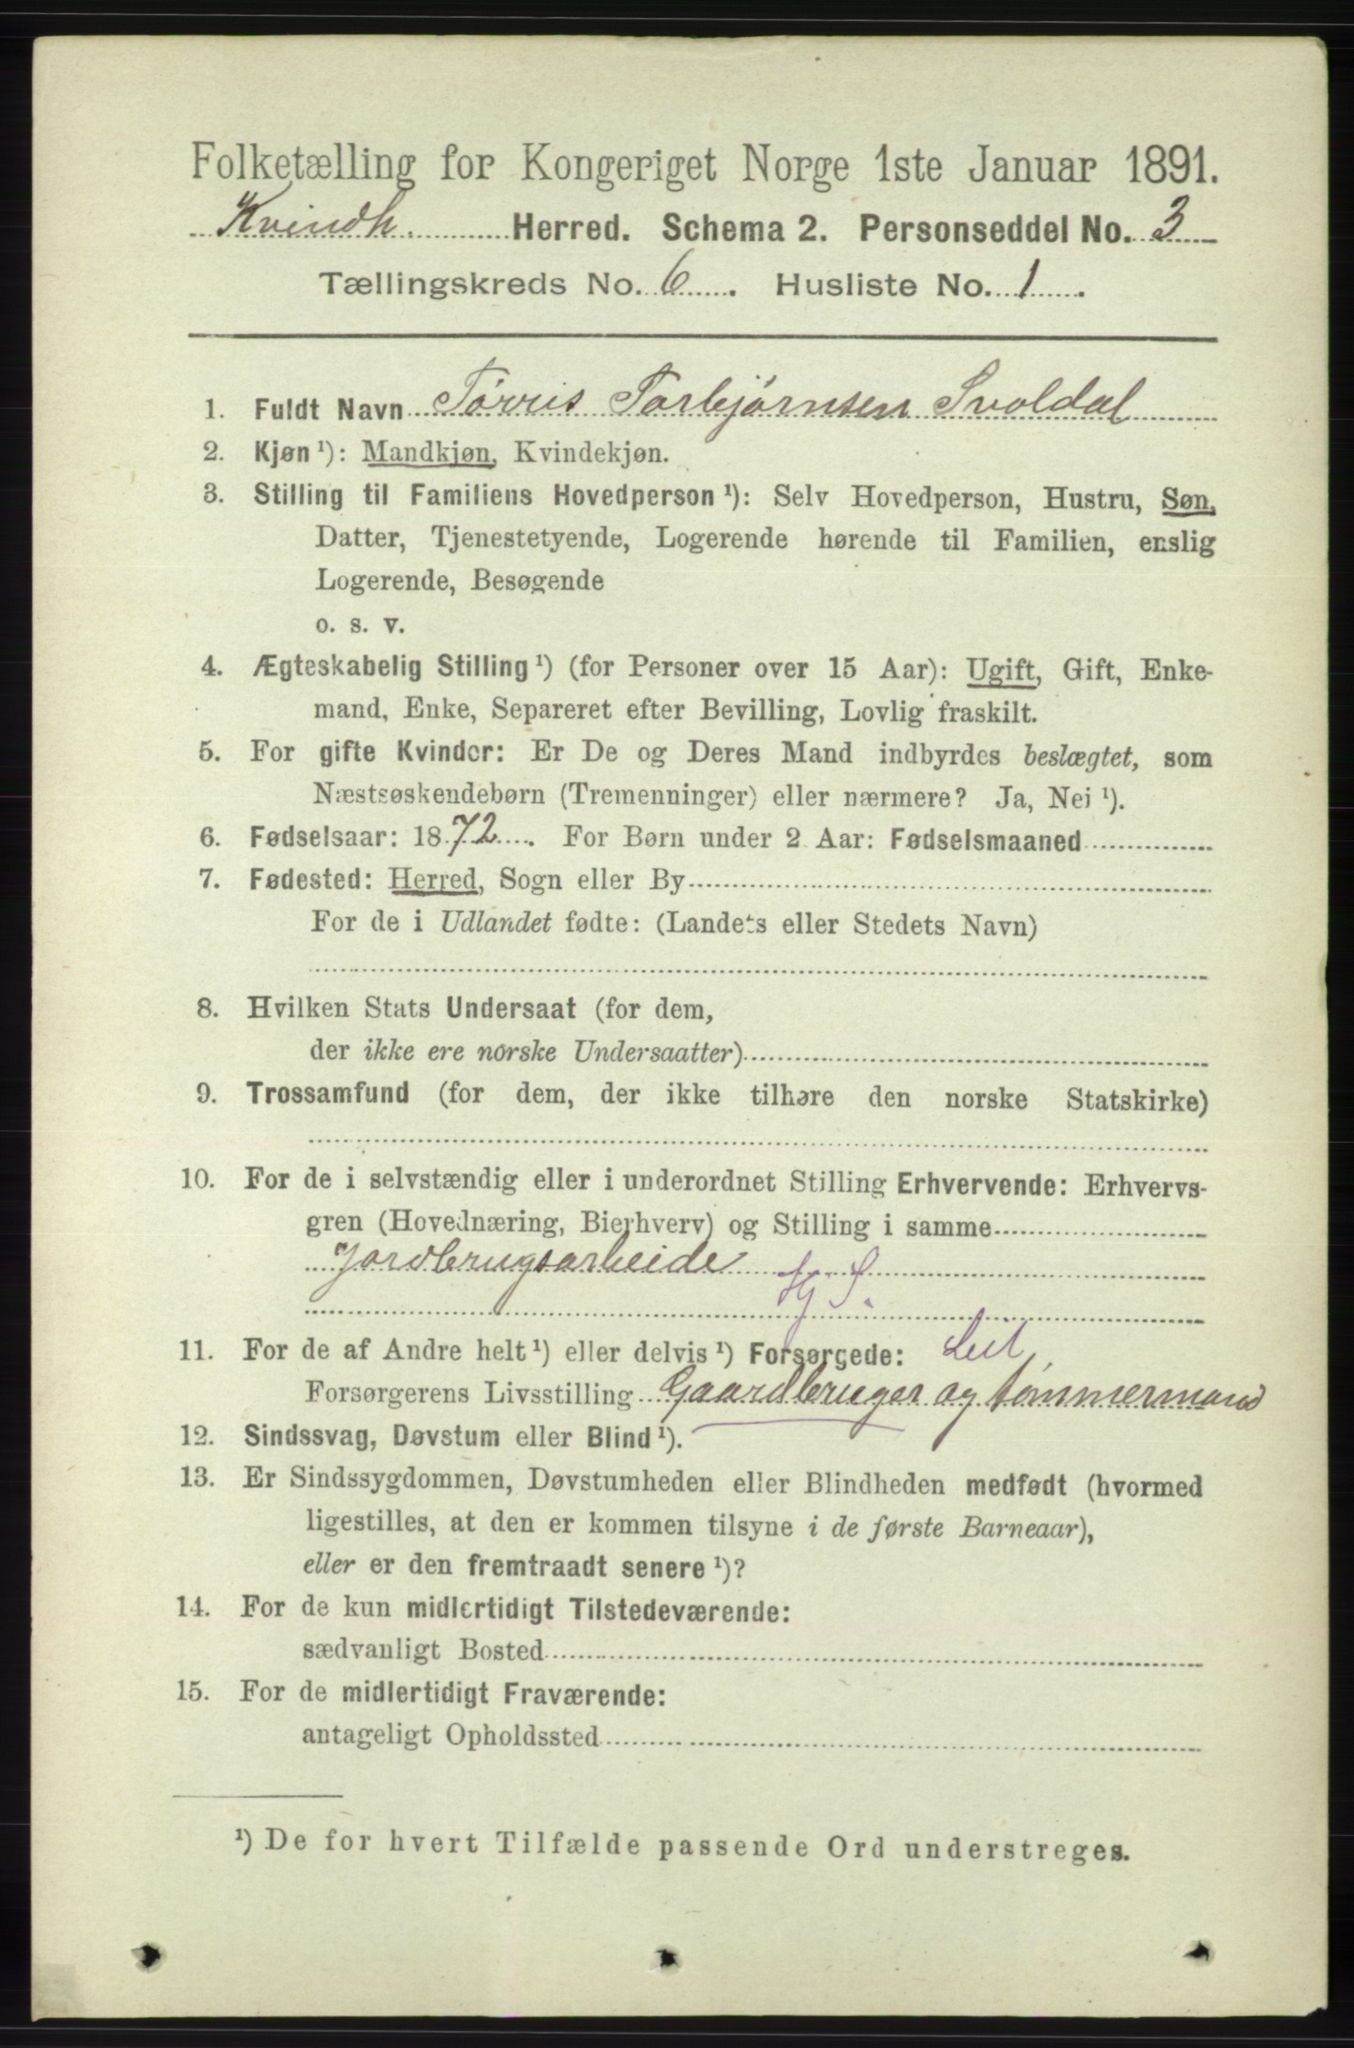 Folketælling for Kongeriget Norge 1ste Januar 1891.
Kvindh. Herred. Schema 2. Personseddel No. 3
Tællingskreds No. 6. Husliste No. 1.
1. Fuldt Navn Tørris Torbjørnsen Svoldal
2. Kjøn ¹): Mandkjøn, Kvindekjøn.
3. Stilling til Familiens Hovedperson ¹): Selv Hovedperson, Hustru, Søn,
Datter, Tjenestetyende, Logerende hørende til Familien, enslig
Logerende, Besøgende
o. s. v.
4. Ægteskabelig Stilling ¹) (for Personer over 15 Aar): Ugift, Gift, Enke-
mand, Enke, Separeret efter Bevilling, Lovlig fraskilt.
5. For gifte Kvinder: Er De og Deres Mand indbyrdes beslægtet, som
Næstsøskendebørn (Tremenninger) eller nærmere? Ja, Nei ¹).
6. Fødselsaar: 1872. For Børn under 2 Aar: Fødselsmaaned
7. Fødested: Herred, Sogn eller By
For de i Udlandet fødte: (Landets eller Stedets Navn)
8. Hvilken Stats Undersaat (for dem,
der ikke ere norske Undersaatter)
9. Trossamfund (for dem, der ikke tilhøre den norske Statskirke)
10. For de i selvstændig eller i underordnet Stilling Erhvervende: Erhvervs-
gren (Hovednæring, Bierhverv) og Stilling i samme
Jordbrugsarbeide
11. For de af Andre helt ¹) eller delvis ¹) Forsørgede:
Forsørgerens Livsstilling Gaardbruger og tømmermand
12. Sindssvag, Døvstum eller Blind ¹).
13. Er Sindssygdommen, Døvstumheden eller Blindheden medfødt (hvormed
ligestilles, at den er kommen tilsyne i de første Barneaar),
eller er den fremtraadt senere ¹)?
14. For de kun midlertidigt Tilstedeværende:
sædvanligt Bosted
15. For de midlertidigt Fraværende:
antageligt Opholdssted
¹) De for hvert Tilfælde passende Ord understreges.